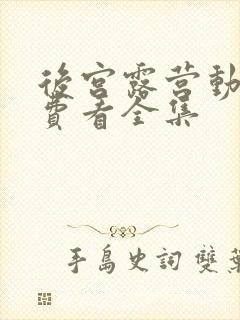 後宮露营動
費看全集
手島史詞 雙葉